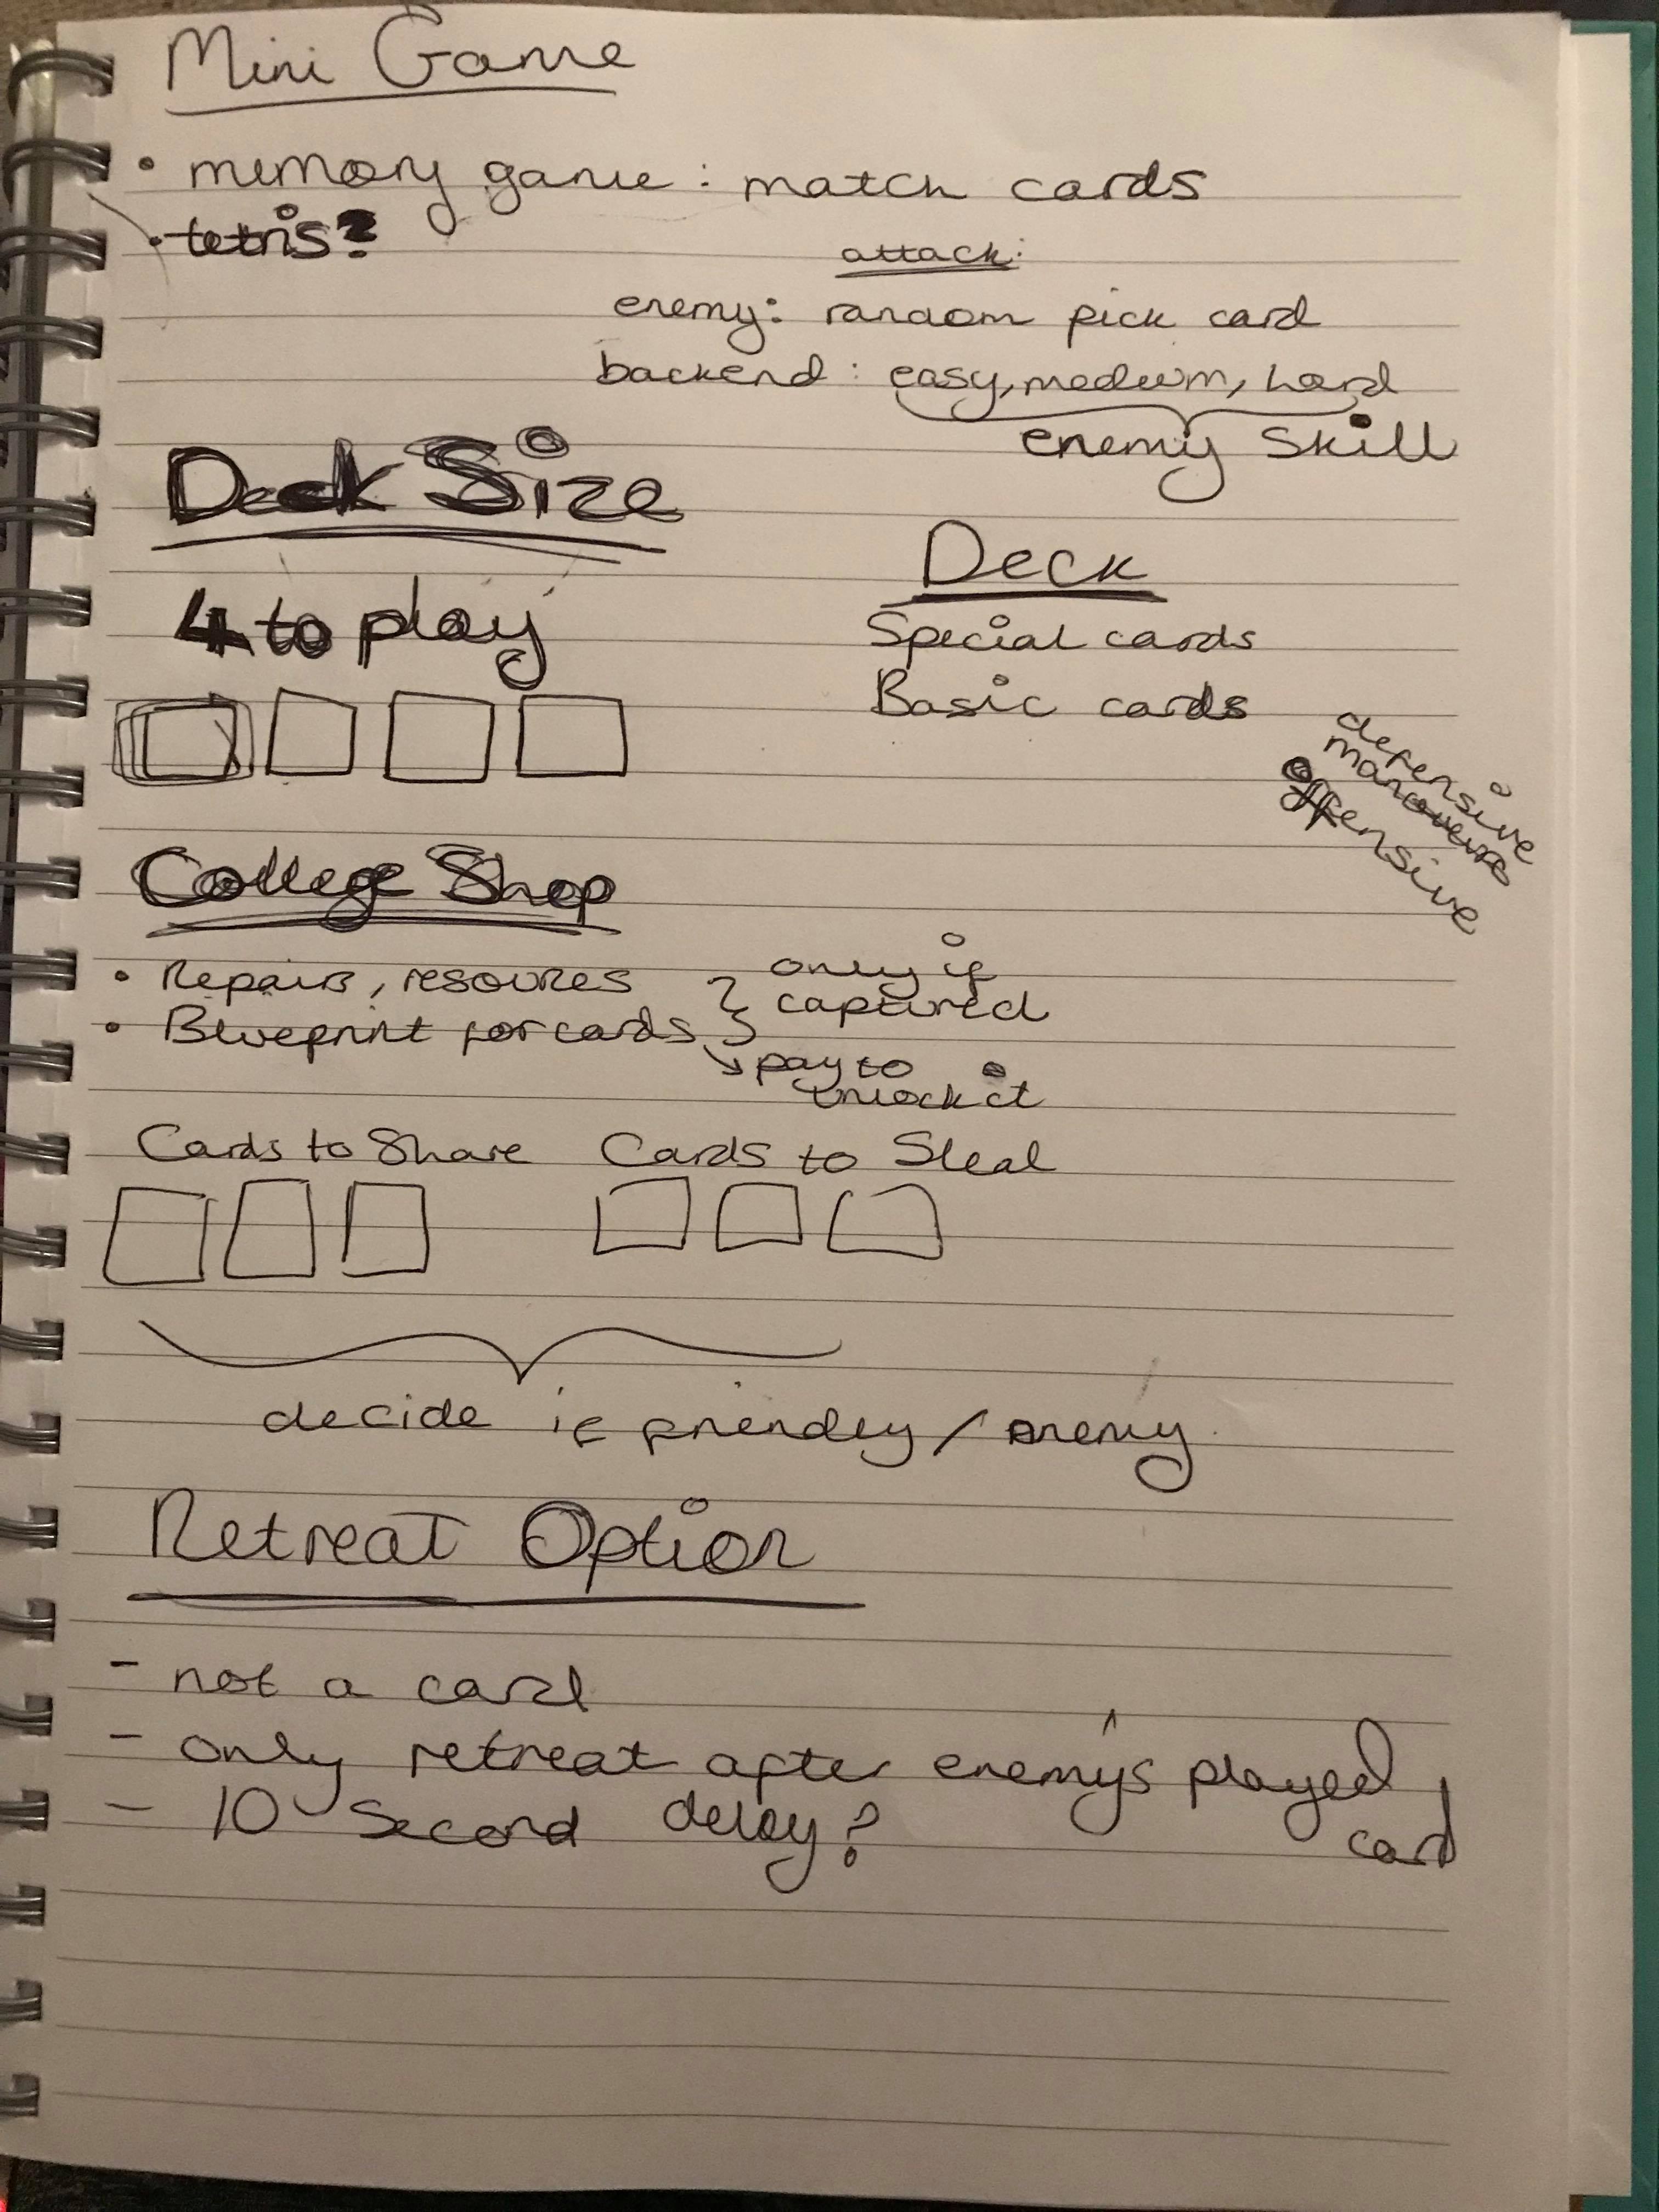 Mini Game
• memory game : match cards
• tetris?
attack:
enemy: random pick card
backend : easy, medium, hard
enemy skill
Deck Size
4 to play
Deck
Special cards
Basic cards
defensive
offensive
College Shop
• Repairs, resources
• Blueprint for cards
only if
captured
pay to
unlock it
Cards to Share
Cards to Steal
decide if friendly / enemy
Retreat Option
- not a card
- only retreat after enemy's played
card
- 10 second delay?